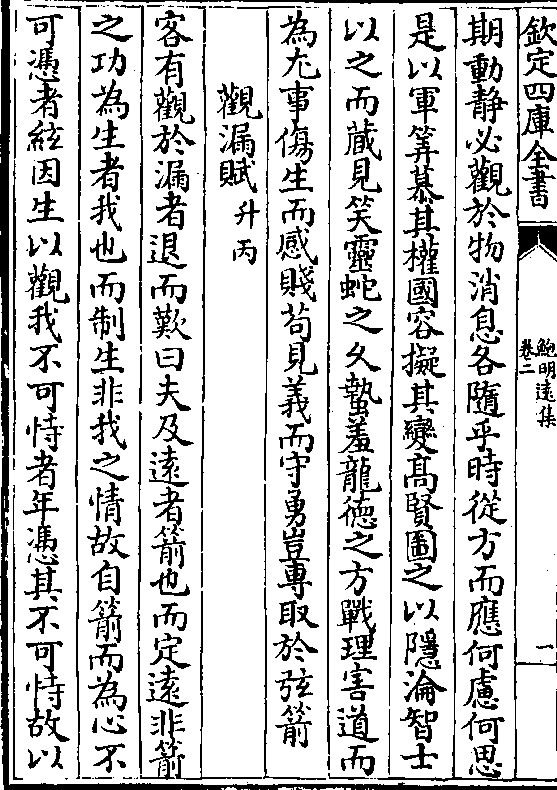 欽定四庫全書
鮑明遠集
卷二
一
期動静必觀於物消息各隨乎時從方而應何慮何思
是以軍筭慕其權國容擬其變髙賢圖之以隱淪智士
以之而藏見笑靈蛇之久蟄羞龍徳之方戰理害道而
為尤事傷生而感賤苟見義而守勇豈專取於弦箭
觀漏賦 并丙
客有觀於漏者退而歎曰夫及遠者箭也而定遠非箭
之功為生者我也而制生非我之情故自箭而為心不
可憑者絃因生以觀我不可恃者年憑其不可恃故以